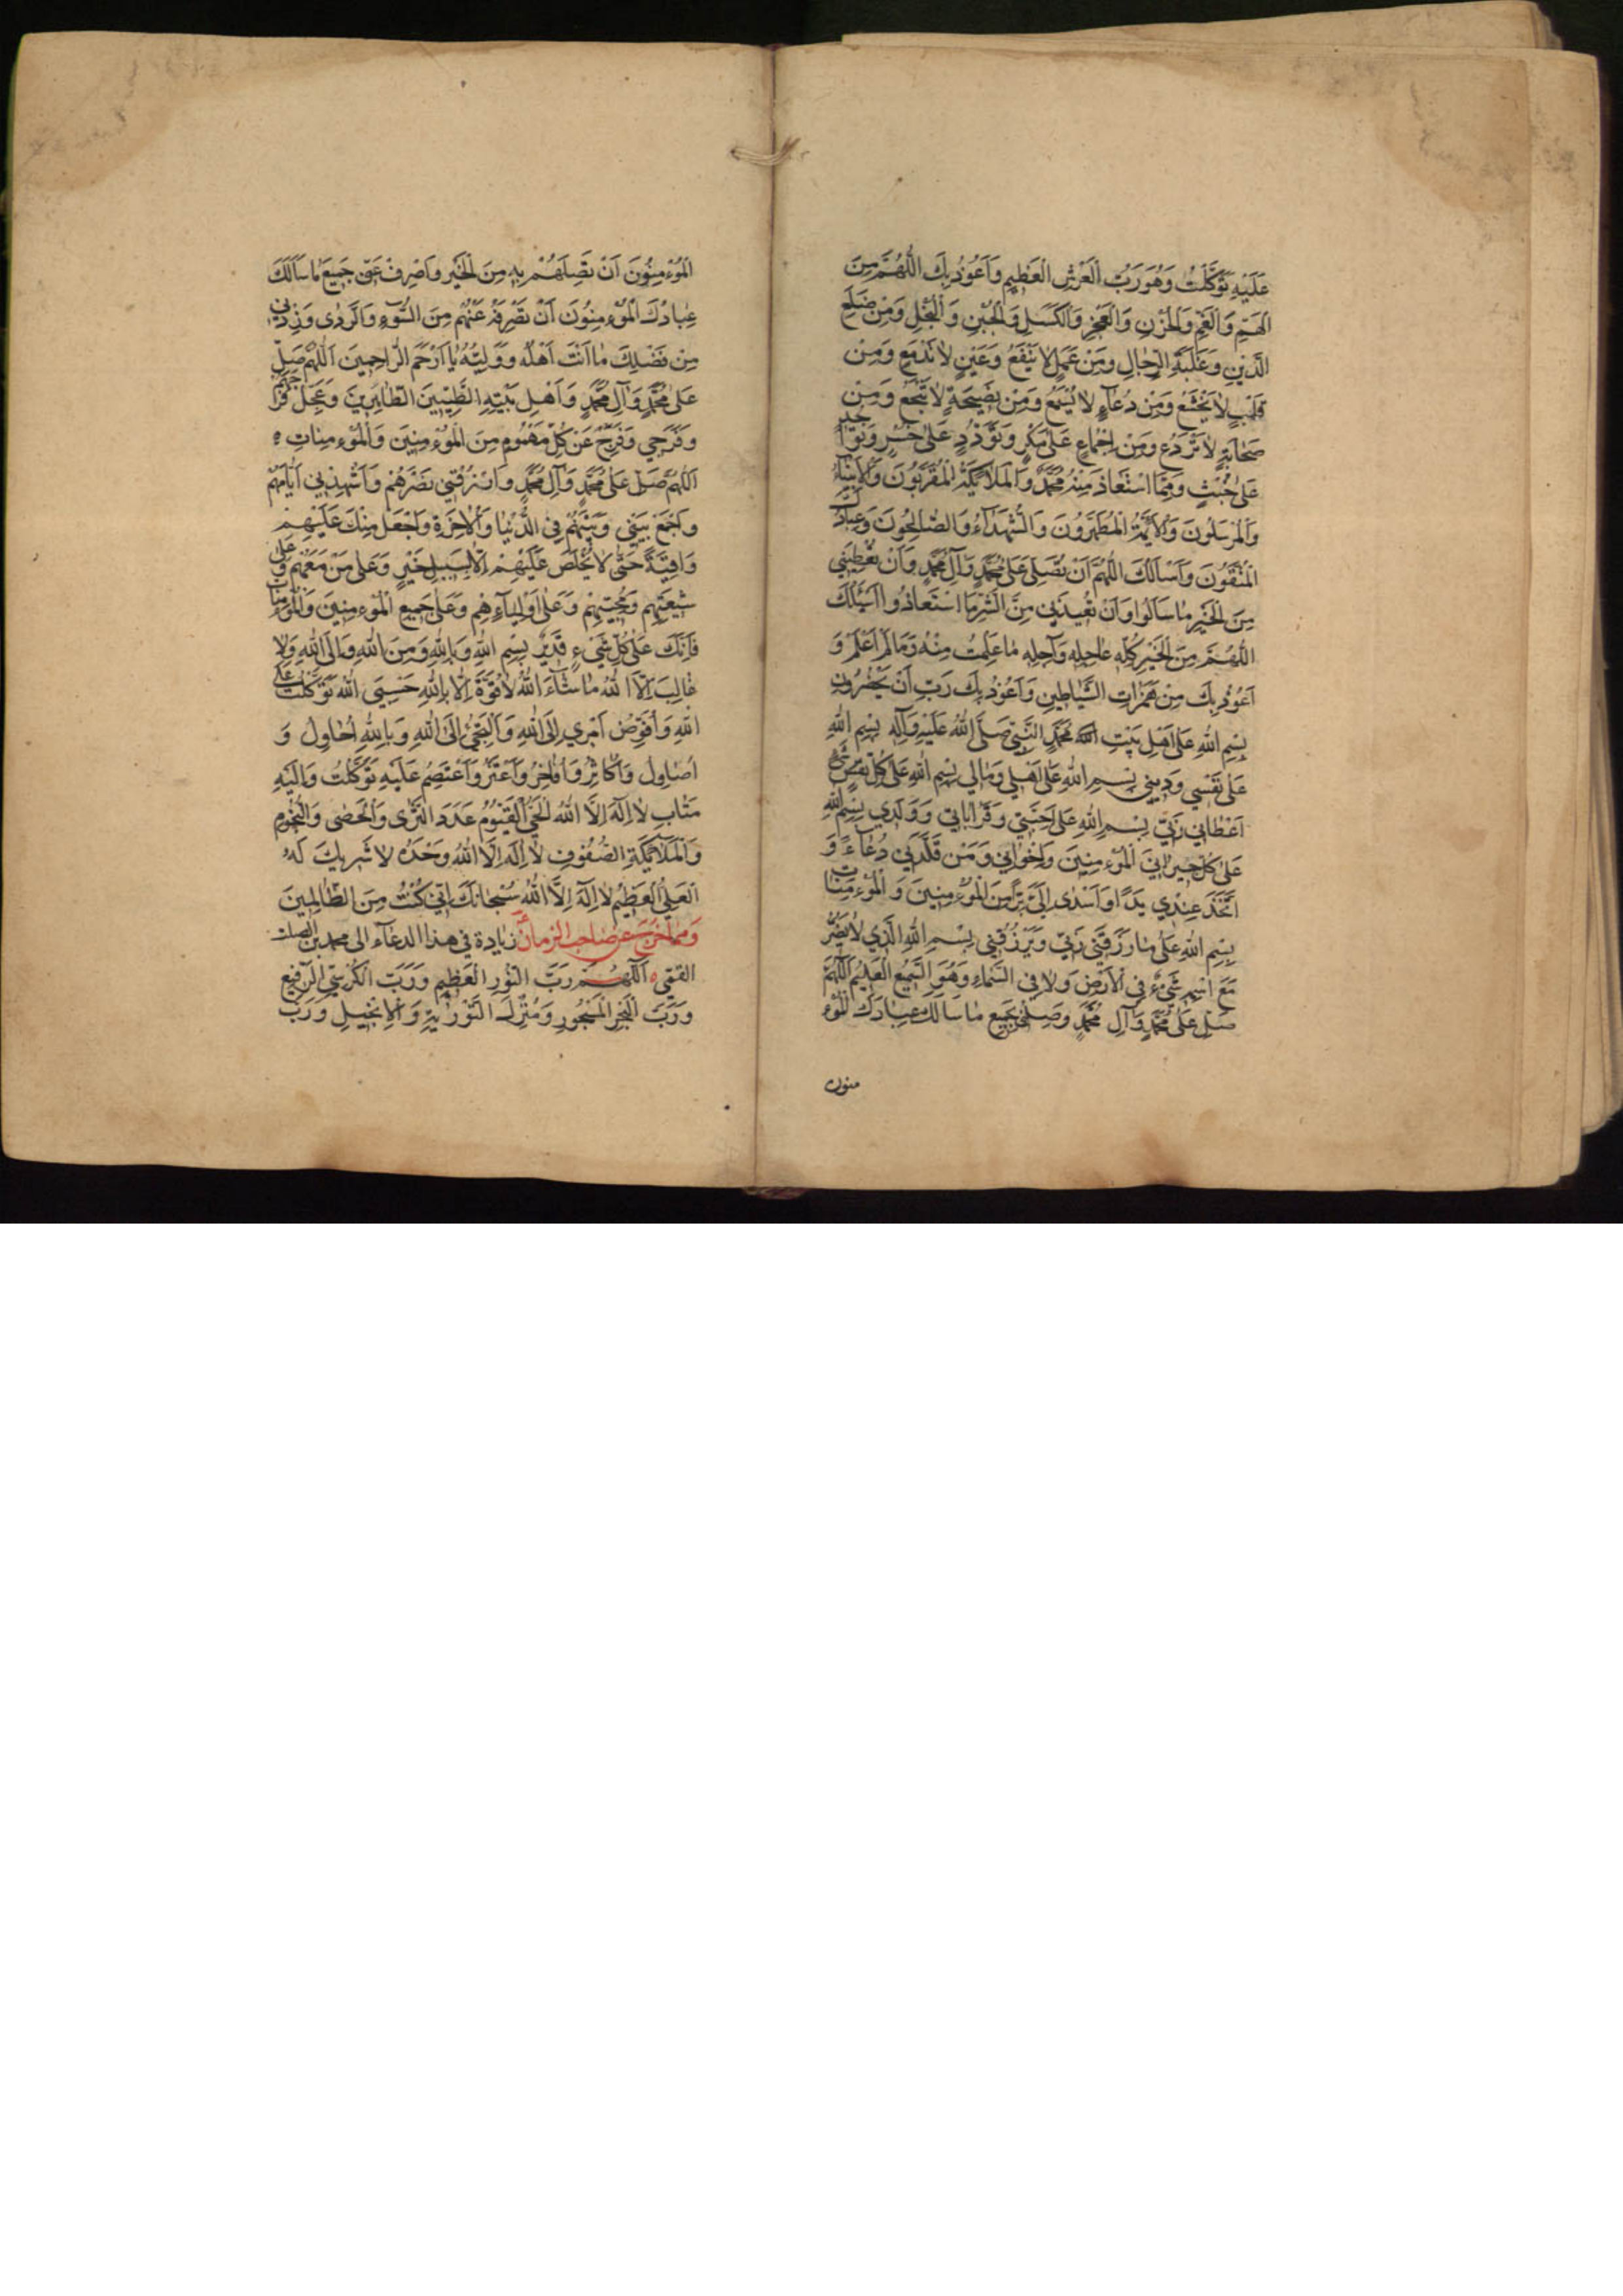 عَلَيْهِ تَوَكَّلْتُ وَهُوَ رَبُّ الْعَرْشِ الْعَظِيمِ وَاَعُوذُ بِكَ اللّٰهُمَّ مِنَ
الْهَمِّ وَالْغَمِّ وَالْحُزْنِ وَالْعَجْزِ وَالْكَسَلِ وَالْجُبْنِ وَالْبُخْلِ وَمِنْ ضَلَعِ
الدَّيْنِ وَغَلَبَةِ الرِّجَالِ وَمِنْ عَمَلٍ لَا يَنْفَعُ وَعَيْنٍ لَا تَدْمَعُ وَمِنْ
قَلْبٍ لَا يَخْشَعُ وَمِنْ دُعَاءٍ لَا يُسْمَعُ وَمِنْ نَصِيحَةٍ لَا تَنْجَعُ وَمِنْ
صَحَابَةٍ لَا تَرْدَعُ وَمِنْ اِجْمَاعٍ عَلَى نُكْرٍ وَتَوَدُّدٍ عَلَى خُسْرٍ وَتَوَاخُذٍ
عَلَى خُبْثٍ وَمِمَّا اسْتَعَاذَ مِنْهُ مُحَمَّدٌ وَالْمَلَائِكَةُ الْمُقَرَّبُونَ وَالْاَنْبِيَاءُ
وَالْمُرْسَلُونَ وَالْاَئِمَّةُ الْمُطَهَّرُونَ وَالشُّهَدَاءُ وَالصَّالِحُونَ وَعِبَادُكَ
الْمُتَّقُونَ وَاَسْاَلُكَ اللّٰهُمَّ اَنْ تُصَلِّيَ عَلَى مُحَمَّدٍ وَآلِ مُحَمَّدٍ وَاَنْ تُعْطِيَنِي
مِنَ الْخَيْرِ مَا سَاَلُوا وَاَنْ تُعِيذَنِي مِنَ الشَّرِّ مَا اسْتَعَاذُوا اَسْئَلُكَ
اللّٰهُمَّ مِنَ الْخَيْرِ كُلِّهِ عَاجِلِهِ وَآجِلِهِ مَا عَلِمْتُ مِنْهُ وَمَا لَمْ اَعْلَمْ وَ
اَعُوذُ بِكَ مِنْ هَمَزَاتِ الشَّيَاطِينِ وَاَعُوذُ بِكَ رَبِّ اَنْ يَحْضُرُونِ
بِسْمِ اللهِ عَلَى اَهْلِ بَيْتِ مُحَمَّدٍ النَّبِيِّ صَلَّى اللهُ عَلَيْهِ وَآلِهِ بِسْمِ اللهِ
عَلَى نَفْسِي وَدِينِي بِسْمِ اللهِ عَلَى اَهْلِي وَمَالِي بِسْمِ اللهِ عَلَى كُلِّ شَيْءٍ
اَعْطَانِي رَبِّي بِسْمِ اللهِ عَلَى اَحِبَّتِي وَقَرَابَاتِي وَوَلَدِي بِسْمِ اللهِ
عَلَى كُلِّ جِيرَانِيَ الْمُؤْمِنِينَ وَاِخْوَانِي وَمَنْ قَلَّدَنِي دُعَاءً وَ
اتَّخَذَ عِنْدِي يَدًا اَوْ اَسْدَى اِلَيَّ بِرًّا مِنَ الْمُؤْمِنِينَ وَالْمُؤْمِنَاتِ
بِسْمِ اللهِ عَلَى مَا رَزَقَنِي رَبِّي وَيَرْزُقُنِي بِسْمِ اللهِ الَّذِي لَا يَضُرُّ
مَعَ اسْمِهِ شَيْءٌ فِي الْاَرْضِ وَلَا فِي السَّمَاءِ وَهُوَ السَّمِيعُ الْعَلِيمُ اَللّٰهُمَّ
صَلِّ عَلَى مُحَمَّدٍ وَآلِ مُحَمَّدٍ وَصِلْنِي بِجَمِيعِ مَا سَاَلَكَ عِبَادُكَ الْمُؤْ
منون
الْمُؤْمِنُونَ اَنْ تَصِلَهُمْ بِهِ مِنَ الْخَيْرِ وَاصْرِفْ عَنِّي جَمِيعَ مَا سَاَلَكَ
عِبَادُكَ الْمُؤْمِنُونَ اَنْ تَصْرِفَهُ عَنْهُمْ مِنَ السُّوءِ وَالرَّدَى وَزِدْنِي
مِنْ فَضْلِكَ مَا اَنْتَ اَهْلُهُ وَوَلِيُّهُ يَا اَرْحَمَ الرَّاحِمِينَ اَللّٰهُمَّ صَلِّ
عَلَى مُحَمَّدٍ وَآلِ مُحَمَّدٍ وَاَهْلِ بَيْتِهِ الطَّيِّبِينَ الطَّاهِرِينَ وَعَجِّلْ فَرَجَهُمْ
وَفَرَجِي وَفَرِّجْ عَنْ كُلِّ مَهْمُومٍ مِنَ الْمُؤْمِنِينَ وَالْمُؤْمِنَاتِ ه
اَللّٰهُمَّ صَلِّ عَلَى مُحَمَّدٍ وَآلِ مُحَمَّدٍ وَارْزُقْنِي نَصْرَهُمْ وَاَشْهِدْنِي اَيَّامَهُمْ
وَاجْمَعْ بَيْنِي وَبَيْنَهُمْ فِي الدُّنْيَا وَالْاٰخِرَةِ وَاجْعَلْ مِنْكَ عَلَيْهِمْ
وَاقِيَةً حَتَّى لَا يُخْلَصَ عَلَيْهِمْ اِلَّا بِسَبِيلِ خَيْرٍ وَعَلَى مَنْ مَعَهُمْ وَعَلَى
شِيعَتِهِمْ وَمُحِبِّيهِمْ وَعَلَى اَوْلِيَاءِهِمْ وَعَلَى جَمِيعِ الْمُؤْمِنِينَ وَالْمُؤْمِنَاتِ
فَاِنَّكَ عَلَى كُلِّ شَيْءٍ قَدِيرٌ بِسْمِ اللهِ وَبِاللهِ وَمِنَ اللهِ وَاِلَى اللهِ وَلَا
غَالِبَ اِلَّا اللهُ مَا شَاءَ اللهُ لَا قُوَّةَ اِلَّا بِاللهِ حَسْبِيَ اللهُ تَوَكَّلْتُ عَلَى
اللهِ وَاُفَوِّضُ اَمْرِي اِلَى اللهِ وَاَلْتَجِئُ اِلَى اللهِ وَبِاللهِ اُحَاوِلُ وَ
اُصَاوِلُ وَاُكَاثِرُ وَاُفَاخِرُ وَاَعْتَزُّ وَاَعْتَصِمُ عَلَيْهِ تَوَكَّلْتُ وَاِلَيْهِ
مَتَابِ لَا اِلٰهَ اِلَّا اللهُ الْحَيُّ الْقَيُّومُ عَدَدَ الثَّرَى وَالْحَصَى وَالنُّجُومِ
وَالْمَلَائِكَةِ الصُّفُوفِ لَا اِلٰهَ اِلَّا اللهُ وَحْدَهُ لَا شَرِيكَ لَهُ
الْعَلِيُّ الْعَظِيمُ لَا اِلٰهَ اِلَّا اللهُ سُبْحَانَكَ اِنِّي كُنْتُ مِنَ الظَّالِمِينَ
وَمِمَّا خَرَجَ عَنْ صَاحِبِ الزَّمَانِ زيادة في هذا الدعاء الى محمد بن الصلت
القمي ه اَللّٰهُمَّ رَبَّ النُّورِ الْعَظِيمِ وَرَبَّ الْكُرْسِيِّ الرَّفِيعِ
وَرَبَّ الْبَحْرِ الْمَسْجُورِ وَمُنْزِلَ التَّوْرٰيةِ وَالْاِنْجِيلِ وَرَبَّ